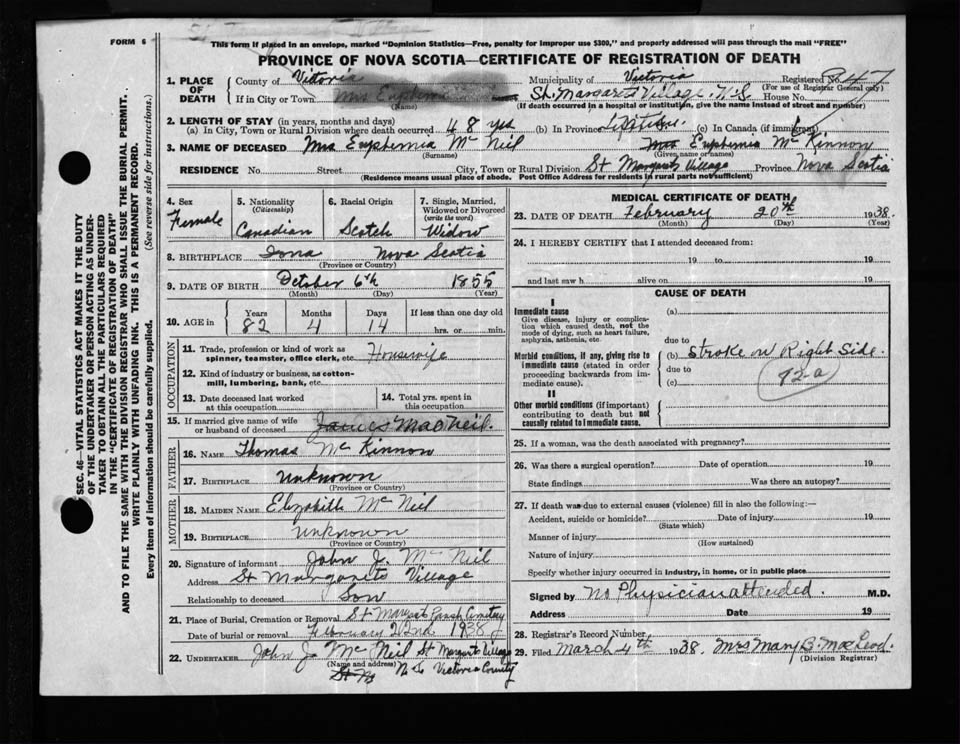 FORM 6
This form if placed in an envelope, marked "Dominion Statistics—Free, penalty for improper use $300," and properly addressed will pass through the mail "FREE"
PROVINCE OF NOVA SCOTIA—CERTIFICATE OF REGISTRATION OF DEATH
SEC. 46—VITAL STATISTICS ACT MAKES IT THE DUTY
OF THE UNDERTAKER OR PERSON ACTING AS UNDER-
TAKER TO OBTAIN ALL THE PARTICULARS REQUIRED
IN THE "CERTIFICATE OF REGISTRATION OF DEATH"
AND TO FILE THE SAME WITH THE DIVISION REGISTRAR WHO SHALL ISSUE THE BURIAL PERMIT.
WRITE PLAINLY WITH UNFADING INK. THIS IS A PERMANENT RECORD.
Every item of information should be carefully supplied. (See reverse side for instructions.)
1. PLACE OF DEATH County of Victoria Municipality of Victoria Registered No. 847
(For use of Registrar General only)
If in City or Town Mrs Euphemia St. Margaret Village. N.S. House No.
(Name) (If death occurred in a hospital or institution, give the name instead of street and number)
2. LENGTH OF STAY (in years, months and days)
(a) In City, Town or Rural Division where death occurred 48 yrs (b) In Province Lifetime. (c) In Canada (if immigrant)
3. NAME OF DECEASED Mrs Euphemia Mc Neil Mrs Euphemia Mc Kinnon
(Surname) (Given name or names)
RESIDENCE No. Street City, Town or Rural Division St Margarets Village Province Nova Scotia
(Residence means usual place of abode. Post Office Address for residents in rural parts not sufficient)
4. Sex Female
5. Nationality (Citizenship) Canadian
6. Racial Origin Scotch
7. Single, Married, Widowed or Divorced (write the word) Widow
8. BIRTHPLACE Iona Nova Scotia
(Province or Country)
9. DATE OF BIRTH October 6th 1855
(Month) (Day) (Year)
10. AGE IN Years 82 Months 4 Days 14 If less than one day old hrs. or min.
OCCUPATION
11. Trade, profession or kind of work as spinner, teamster, office clerk, etc. Housewife
12. Kind of industry or business, as cotton-mill, lumbering, bank, etc.
13. Date deceased last worked at this occupation
14. Total yrs. spent in this occupation
15. If married give name of wife or husband of deceased James MacNeil.
FATHER
16. NAME Thomas Mc Kinnon
17. BIRTHPLACE Unknown
(Province or Country)
MOTHER
18. MAIDEN NAME Elizabeth Mc Neil
19. BIRTHPLACE Unknown
(Province or Country)
20. Signature of informant John J. Mc Neil
Address St Margarets Village
Relationship to deceased Son
21. Place of Burial, Cremation or Removal St Margarets Parish Cemetery
Date of burial or removal February 22nd 1938
22. UNDERTAKER John J Mc Neil St Margarets Village
(Name and address) N.S. Victoria County
MEDICAL CERTIFICATE OF DEATH
23. DATE OF DEATH February 20th 1938.
(Month) (Day) (Year)
24. I HEREBY CERTIFY that I attended deceased from:
19 to 19
and last saw h alive on 19
CAUSE OF DEATH
I
Immediate cause (a)
Give disease, injury or complication which caused death, not the mode of dying, such as heart failure, asphyxia, asthenia, etc.
due to
Morbid conditions, if any, giving rise to immediate cause (stated in order proceeding backwards from immediate cause). (b) Stroke on Right Side.
due to
(c) 92a
II
Other morbid conditions (if important) contributing to death but not causally related to immediate cause.
25. If a woman, was the death associated with pregnancy?
26. Was there a surgical operation? Date of operation 19
State findings Was there an autopsy?
27. If death was due to external causes (violence) fill in also the following:—
Accident, suicide or homicide? Date of injury 19
(State which)
Manner of injury
(How sustained)
Nature of injury
Specify whether injury occurred in industry, in home, or in public place
Signed by No Physician attended. M.D.
Address Date 19
28. Registrar's Record Number
29. Filed March 4th 1938. Mrs Mary B. MacLeod.
(Division Registrar)